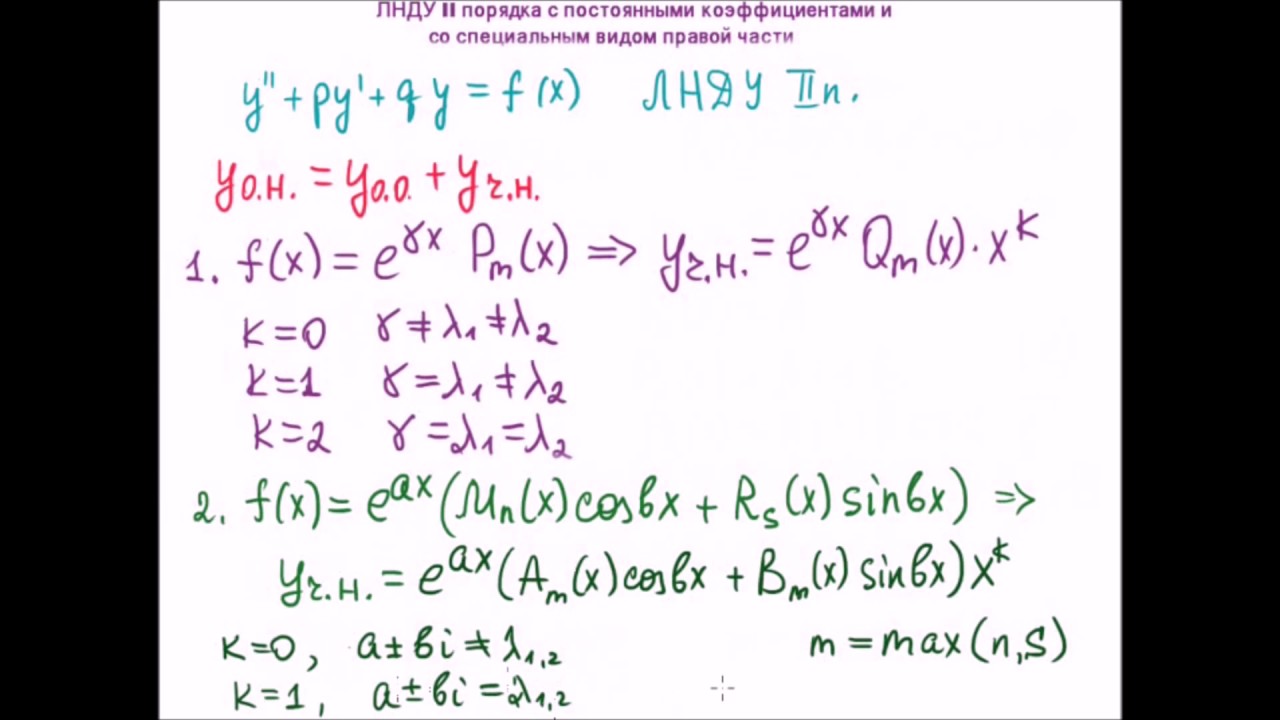 ЛНДУ II порядка с постоянными коэффициентами и
со специальным видом правой части
y'' + py' + qy = f(x) ЛНДУ II п.
yо.н. = yо.о. + yч.н.
1. f(x) = e^{γx} Pm(x) => yч.н. = e^{γx} Qm(x)·x^k
k=0 γ ≠ λ1 ≠ λ2
k=1 γ = λ1 ≠ λ2
k=2 γ = λ1 = λ2
2. f(x) = e^{ax}(Mn(x)cosвx + Rs(x)sinвx) =>
yч.н. = e^{ax}(Am(x)cosвx + Bm(x)sinвx)x^k
k=0, a±вi ≠ λ1,2 m = max(n,s)
k=1, a±вi = λ1,2